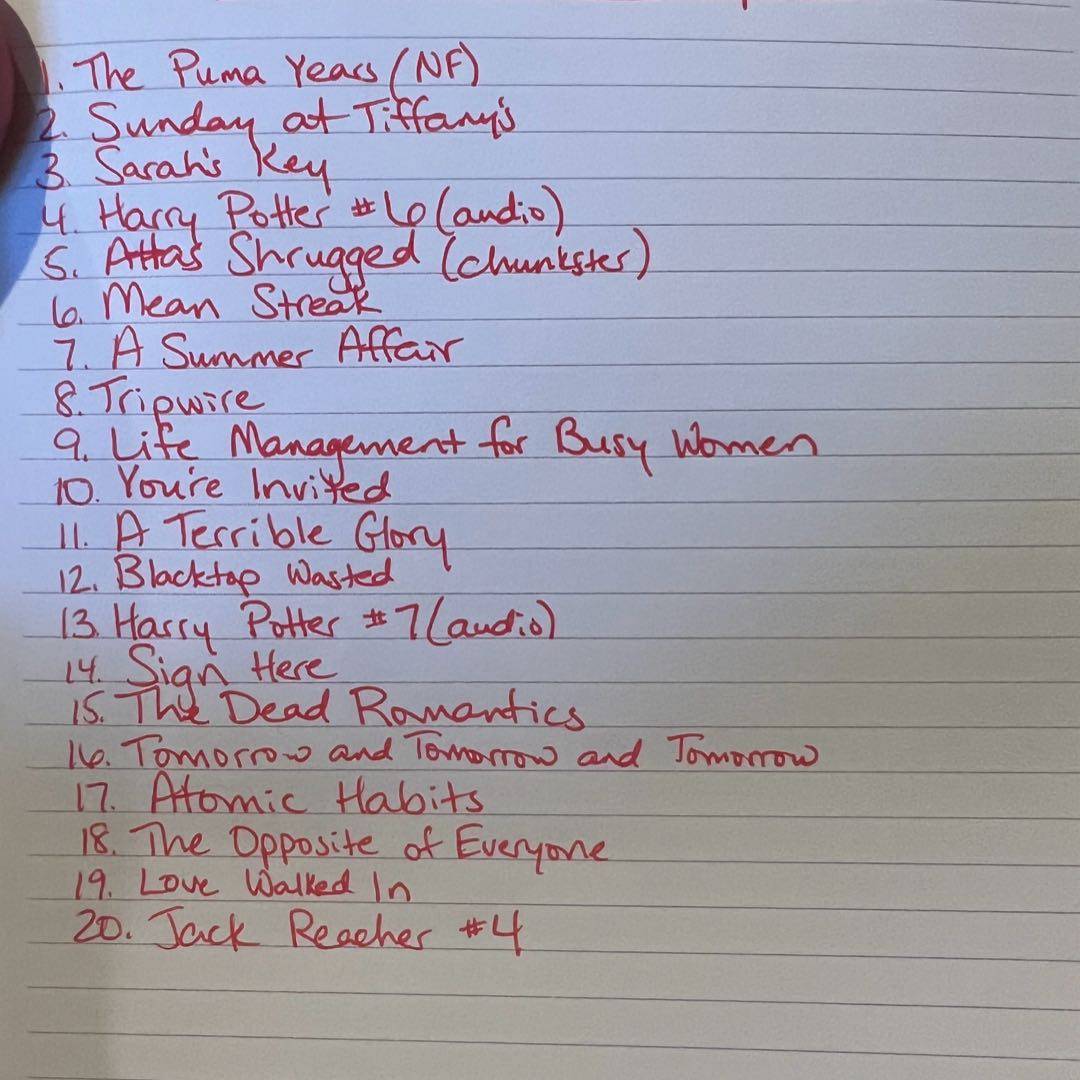 1. The Puma Years (NF)
2. Sunday at Tiffany's
3. Sarah's Key
4. Harry Potter #6 (audio)
5. Atlas Shrugged (chunkster)
6. Mean Streak
7. A Summer Affair
8. Tripwire
9. Life Management for Busy Women
10. You're Invited
11. A Terrible Glory
12. Blacktop Wasted
13. Harry Potter #7 (audio)
14. Sign Here
15. The Dead Romantics
16. Tomorrow and Tomorrow and Tomorrow
17. Atomic Habits
18. The Opposite of Everyone
19. Love Walked In
20. Jack Reacher #4